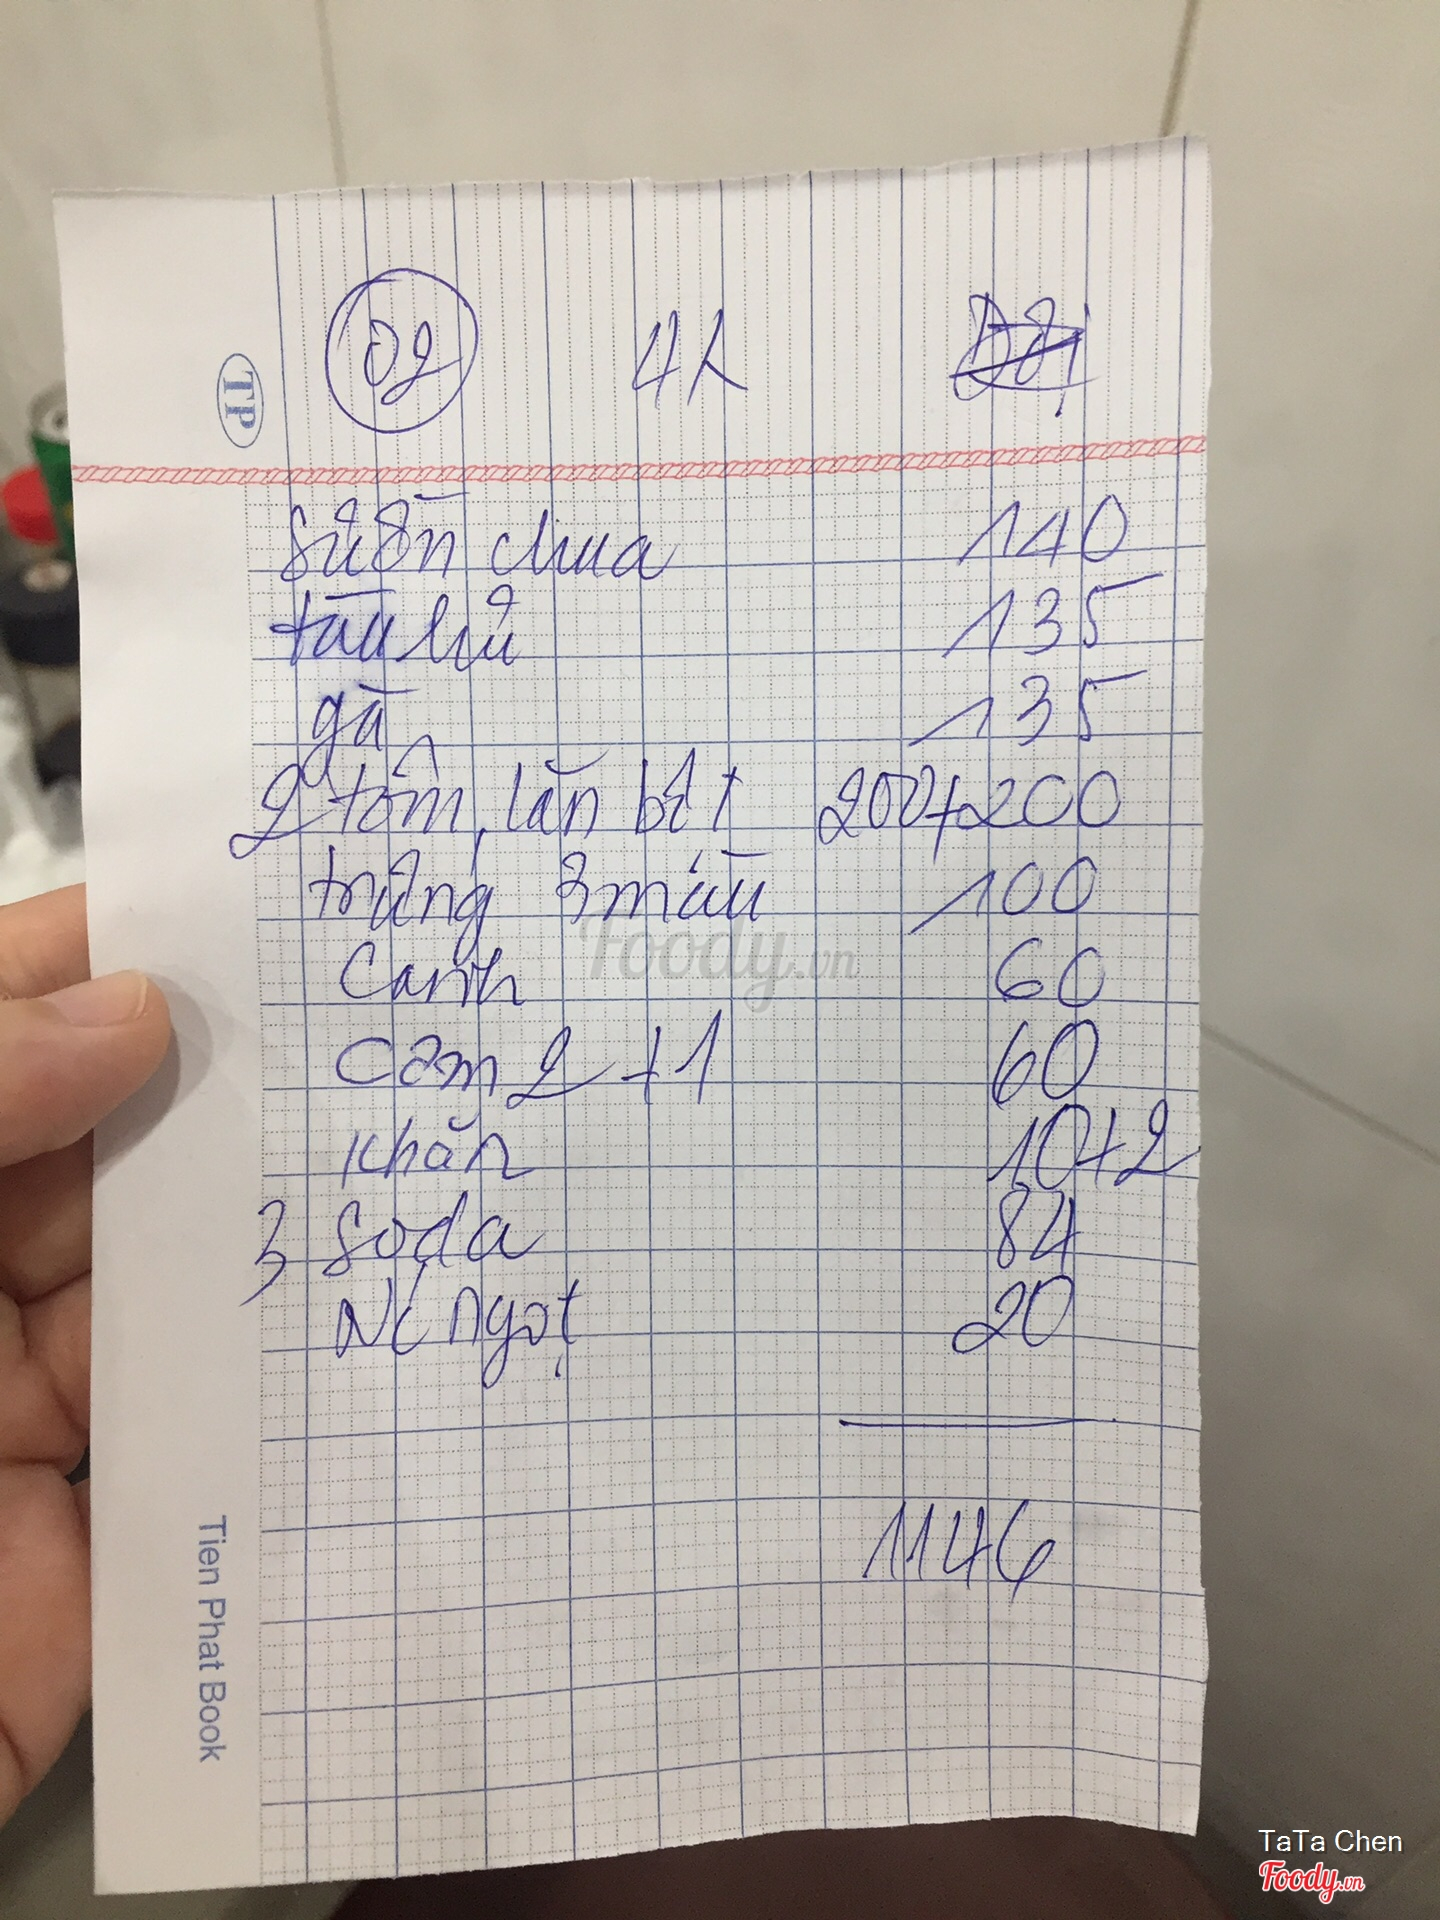 02 4K Đợi
TP
sườn chua 140
tàu hủ 135
gà 135
2 tôm lăn bột 200+200
trứng 3 màu 100
Canh 60
Cơm 2+1 60
Khăn 10+2
3 Soda 84
Nc ngọt 20
1146
Tien Phat Book
Foody.vn
TaTa Chen
Foody.vn